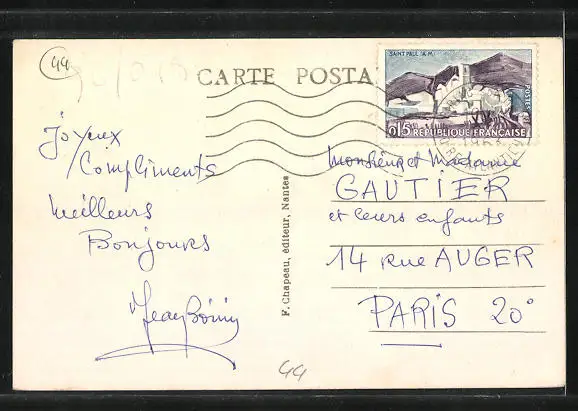 44
CARTE POSTA
SAINT PAUL (A.M.)
POSTES
0,15 RÉPUBLIQUE FRANÇAISE
Joyeux
Compliments
Meilleurs
Bonjours
F. Chapeau, éditeur, Nantes
Monsieur et Madame
GAUTIER
et leurs enfants
14 rue AUGER
PARIS 20°
44